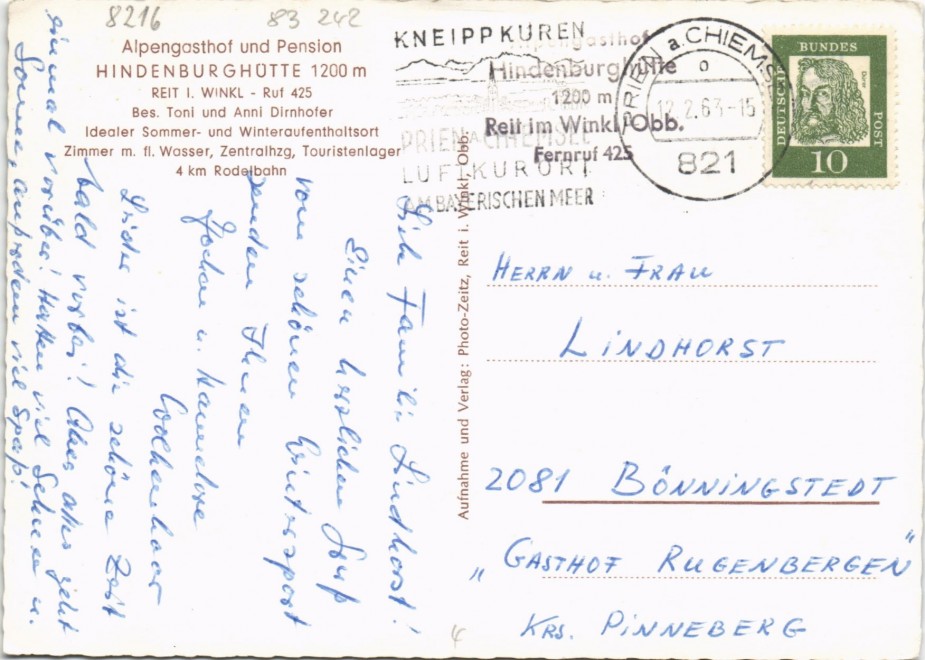 8216
83 242
Alpengasthof und Pension
HINDENBURGHÜTTE 1200 m
REIT I. WINKL - Ruf 425
Bes. Toni und Anni Dirnhofer
Idealer Sommer- und Winteraufenthaltsort
Zimmer m. fl. Wasser, Zentralhzg, Touristenlager
4 km Rodelbahn
KNEIPPKUREN
PRIEN A CHIEMSEE
LUFTKURORT
AM BAYERISCHEN MEER
Alpengasthof
Hindenburghütte
1200 m
Reit im Winkl/Obb.
Fernruf 425
PRIEN a. CHIEMS
12.2.63-15
821
DEUTSCHE
BUNDES
POST
Dürer
10
Liebe Familie Lindhorst!
Einen herzlichen Gruß
vom schönen Wintersport
senden Ihnen
Jochen u. Hannelore
Leider ist die schöne Zeit
bald vorbei! Aber alles geht
einmal vorüber! Hatten viel Schnee u.
Sonne, außerdem viel Spaß!
Aufnahme und Verlag: Photo-Zeitz, Reit i. Winkl, Obb.
HERRN u. FRAU
LINDHORST
2081 BÖNNINGSTEDT
„GASTHOF RUGENBERGEN"
KRS. PINNEBERG